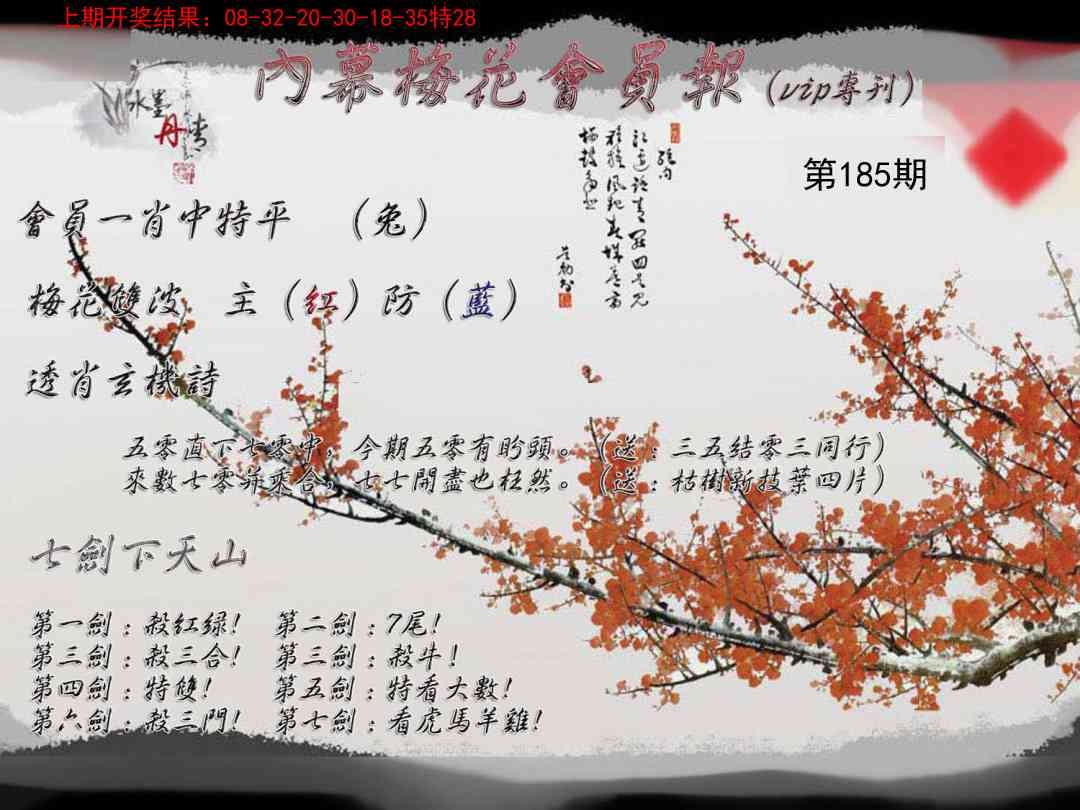 上期开奖结果：08-32-20-30-18-35特28
內幕梅花會員報（vip專刊）
水墨
丹情
第185期
會員一肖中特平　（兔）
梅花雙波　主（紅）防（藍）
透肖玄機詩
五零直下七零中，今期五零有盼頭。（送：三五结零三同行）
來數七零并乘合，七七開盡也枉然。（送：枯樹新技葉四片）
七劍下天山
第一劍：殺紅绿!　第二劍：7尾!
第三劍：殺三合!　第三劍：殺牛!
第四劍：特雙!　第五劍：特看大數!
第六劍：殺三門!　第七劍：看虎馬羊雞!